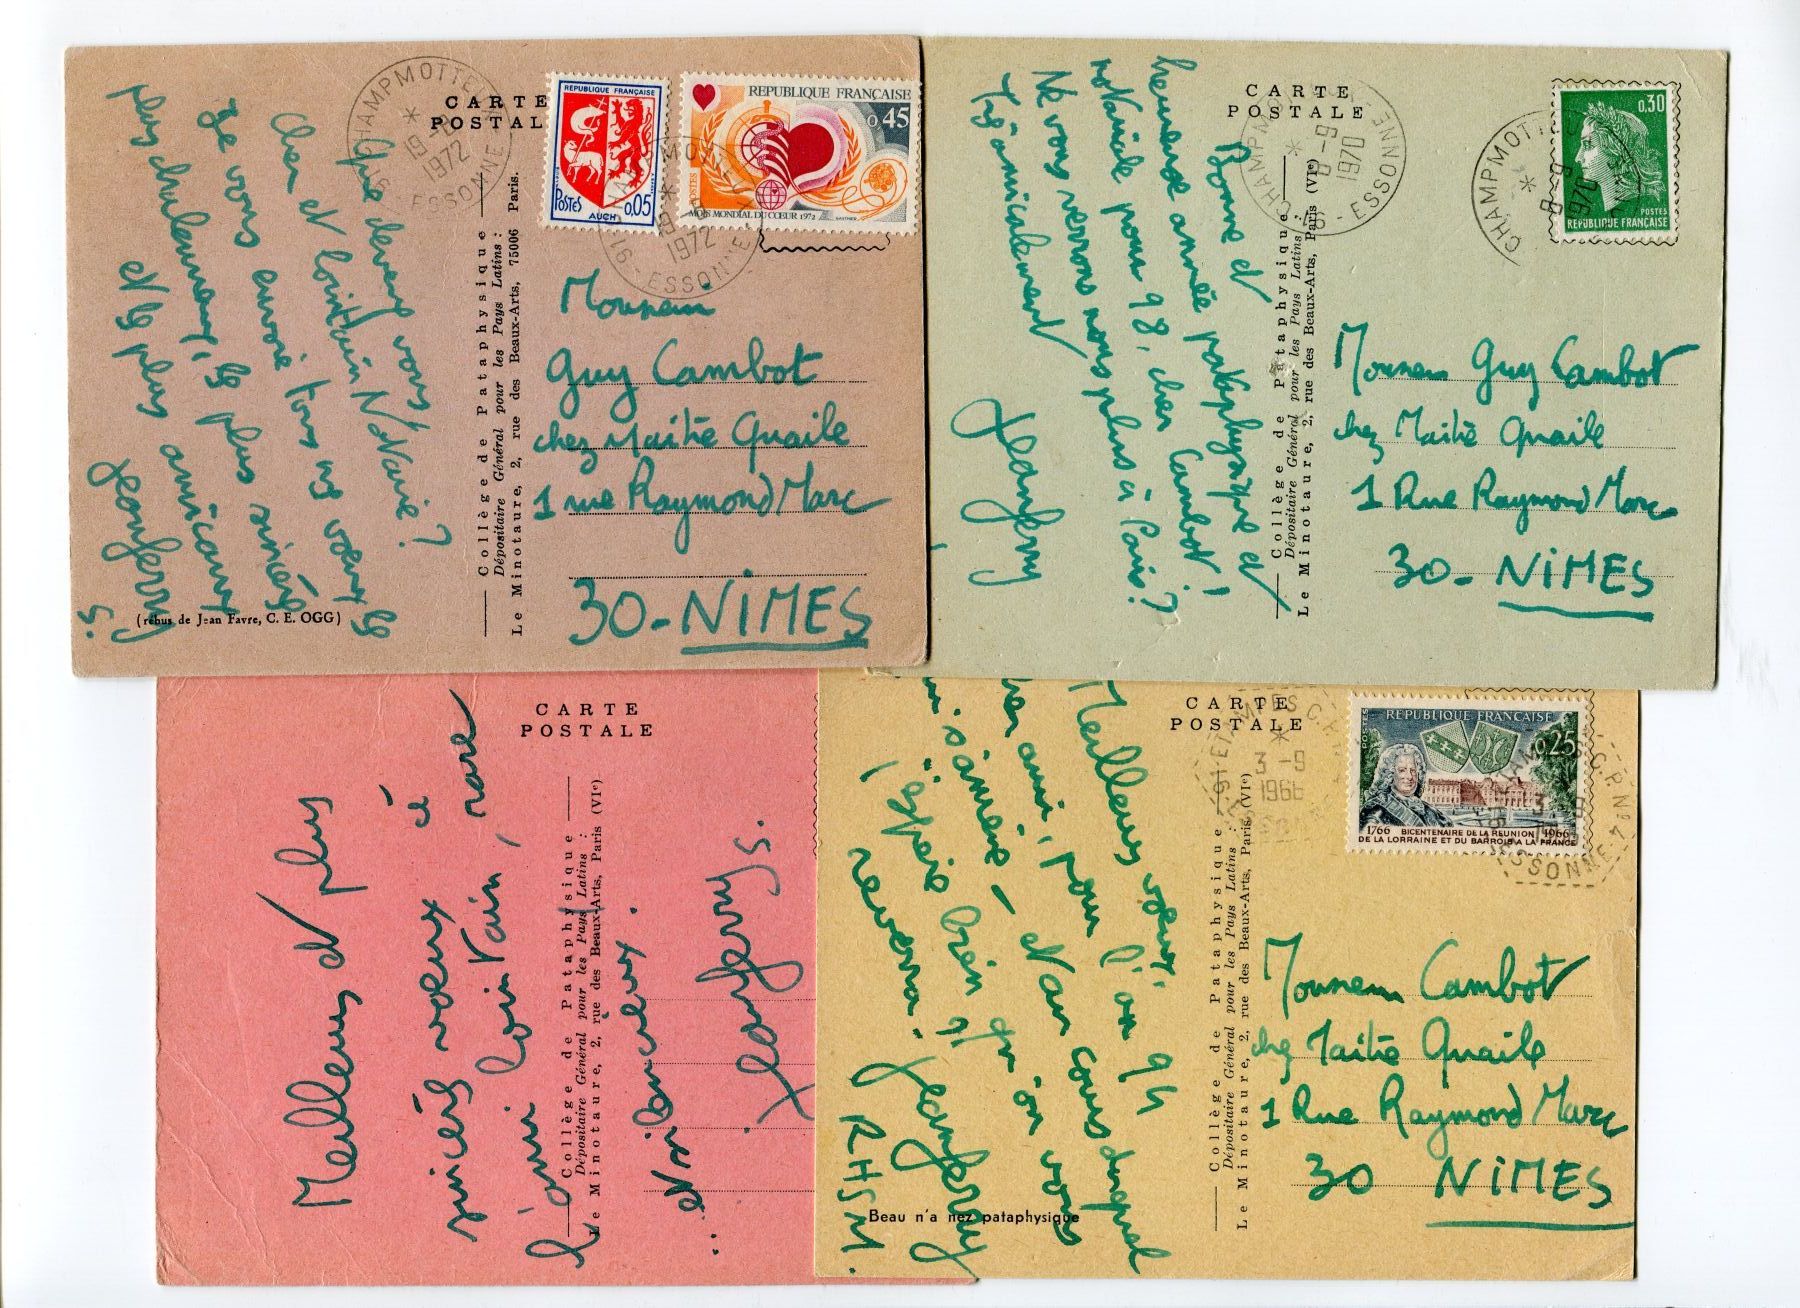 CARTE
POSTALE
CHAMPMOTTEUX
19
1972
91 - ESSONNE
RÉPUBLIQUE FRANÇAISE
POSTES
0,05
AUCH
RÉPUBLIQUE FRANÇAISE
0,45
POSTES
MOIS MONDIAL DU CŒUR 1972
1972
91 - ESSONNE
Que devenez vous
cher et lointain Notaire ?
Je vous envoie tous nos vœux les
plus chaleureux, les plus sincères
et les plus amicaux
Jeanferry
S.
(rébus de Jean Favre, C. E. OGG)
Collège de Pataphysique
Dépositaire Général pour les Pays Latins :
Le Minotaure, 2, rue des Beaux-Arts, 75006 Paris.
Monsieur
Guy Cambot
chez Maître Quaile
1 rue Raymond Marc
30 - NIMES
CARTE
POSTALE
CHAMPMOTTEUX
8 - 9
1970
91 - ESSONNE
0,30
POSTES
RÉPUBLIQUE FRANÇAISE
CHAMPMOTTEUX
8 - 9
1970
Bonne et
heureuse année pataphysique et
notariale pour 98, cher Cambot !
Ne vous verrons nous plus à Paris ?
Très amicalement
Jeanferry
Collège de Pataphysique
Dépositaire Général pour les Pays Latins :
Le Minotaure, 2, rue des Beaux-Arts, Paris (VIe)
Monsieur Guy Cambot
chez Maître Quaile
1 Rue Raymond Marc
30 - NIMES
CARTE
POSTALE
Meilleurs et plus
sincères vœux à
l'ami lointain, rare
...et silencieux.
Jeanferry S.
Collège de Pataphysique
Dépositaire Général pour les Pays Latins :
Le Minotaure, 2, rue des Beaux-Arts, Paris (VIe)
CARTE
POSTALE
ETAMPES C.P.
3 - 9
1966
91
RÉPUBLIQUE FRANÇAISE
POSTES
0,25
1766 BICENTENAIRE DE LA RÉUNION 1966
DE LA LORRAINE ET DU BARROIS A LA FRANCE
C.P. N° 4
ESSONNE
Meilleurs vœux,
cher ami, pour l'an 94
et au cours duquel
j'espère bien qu'on vous
reverra - Jeanferry
RHSM.
Beau n'a nez pataphysique
Collège de Pataphysique
Dépositaire Général pour les Pays Latins :
Le Minotaure, 2, rue des Beaux-Arts, Paris (VIe)
Monsieur Cambot
chez Maître Quaile
1 Rue Raymond Marc
30 NIMES